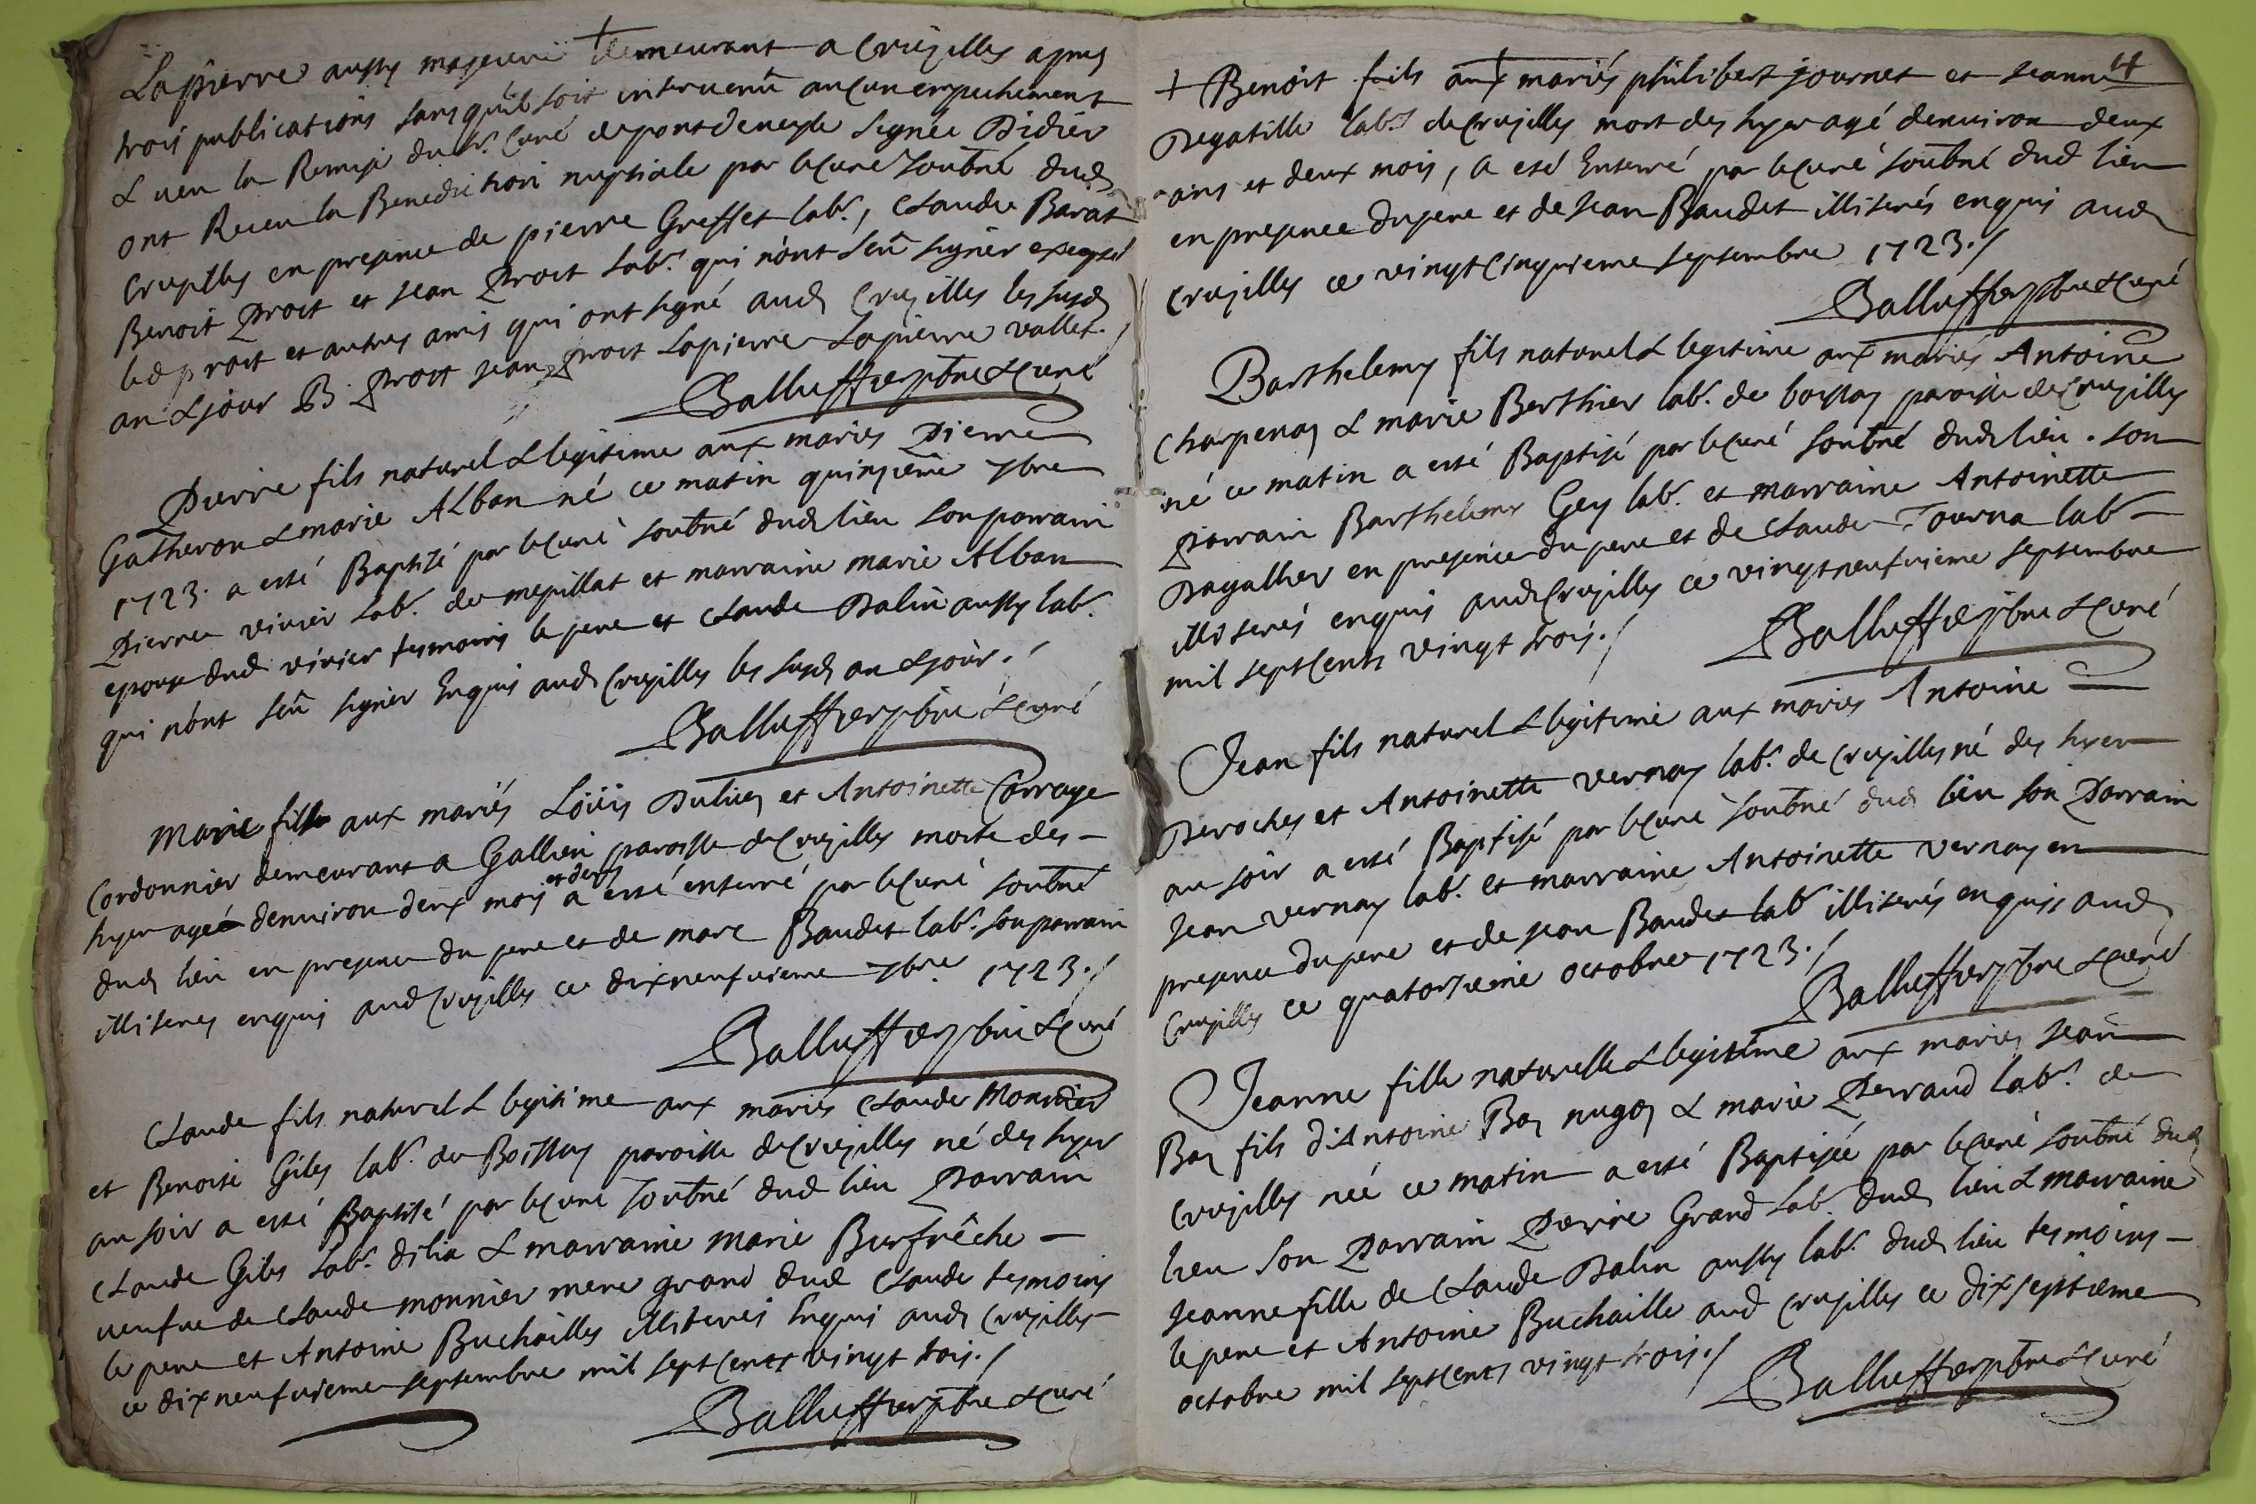 Lapierre aussy demeurant a Crujilles apres
trois publications sans qu'il soit intervenû aucun empechement
& veu la Remise du Sr. Curé de pontdeveyle signée Didier
ont Receu la Benediction nuptiale par le Curé soubné dud
Crujilles en presence de pierre Greffet labr., Claude Barat
Benoit Proit et Jean Proit labr. qui n'ont seû signer excepté
led proit et autres amis qui ont signé aud Crujilles les susd
an & jour B. Proit Jean Proit Lapierre Lapierre vallet./
Balluffier pbre & Curé
Pierre fils naturel & legitime aux mariés Pierre
Gatheron & marie Alban né ce matin quinzieme 7bre
1723. a esté Baptisé par le Curé soubné dud lieu son parrain
Pierre vivier labr. de mepillat et marraine marie Alban
epoux dud vivier tesmoins le pere et Claude Palin aussy labr.
qui n'ont seû signer Enquis aud Crujilles les susd an & jour./
Balluffier pbre & Curé
Marie fille aux mariés Loüis Dutier et Antoinette Corrage
Cordonnier demeurant a Gallien paroisse de Crujilles morte des
et demy
hyer agée denviron deux mois a esté enterré par le Curé soubné
dud lieu en presence du pere et de marc Baudet labr. son parrain
illiterés enquis aud Crujilles ce dixneufvieme 7bre 1723./
Balluffier pbre & Curé
Claude fils naturel & legitime aux mariés Claude Monnier
et Benoite Giles labr. de Boissey paroisse de Crujilles né des hyer
au soir a esté Baptisé par le Curé soubné dud lieu Parrain
Claude Giles labr. dilia & marraine marie Burfrêche
veufve de Claude monnier mere grand dud Claude tesmoins
le pere et Antoine Buchailles illiterés Enquis aud Crujilles
ce dixneufvieme septembre mil septcents vingt trois./
Balluffier pbre & Curé
4
+ Benoît fils aux mariés philibert journet et Jeanne
Degatille labrs de Crujilles mort des hyer agé denviron deux
ans et deux mois, a esté Enterré par le Curé soubné dud lieu
en presence du pere et de Jean Baudet illiterés enquis aud
Crujilles ce vingtcinquieme septembre 1723./
Balluffier pbre & Curé
Barthelemy fils naturel & legitime aux mariés Antoine
Charpenay & marie Berthier labr. de boissey paroisse de Crujilles
né ce matin a esté Baptisé par le Curé soubné dud lieu. son
Parrain Barthelemy Gey labr. et marraine Antoinette
Dagallier en presence du pere et de Claude Tourna labr
illiterés enquis aud Crujilles ce vingtneufvieme septembre
mil septcents vingt trois./
Balluffier pbre & Curé
Jean fils naturel & legitime aux mariés Antoine
Deroches et Antoinette vernay labr. de Crujilles né des hyer
au soir a esté Baptisé par le Curé soubné dud lieu son Parrain
Jean vernay labr. et marraine Antoinette vernay en
presence du pere et de Jean Baudet labr illiterés enquis aud
Crujilles ce quatorzieme octobre 1723./
Balluffier pbre & Curé
Jeanne fille naturelle & legitime aux mariés Jean
Bay fils d'Antoine Bay nugoy & marie Perraud labr. de
Crujilles née ce matin a esté Baptisée par le Curé soubné dud
lieu son Parrain Pierre Grand labr. dud lieu & marraine
Jeanne fille de Claude Palin aussy labr. dud lieu tesmoins
le pere et Antoine Buchaille aud Crujilles ce dixseptieme
octobre mil septcents vingt trois./
Balluffier pbre & Curé